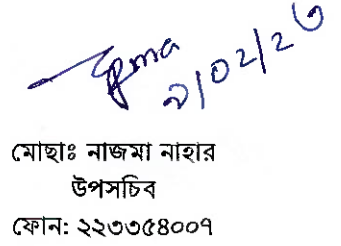 ৯/০২/২৬
মোছাঃ নাজমা নাহার
উপসচিব
ফোন: ২২৩৩৫৪০০৭